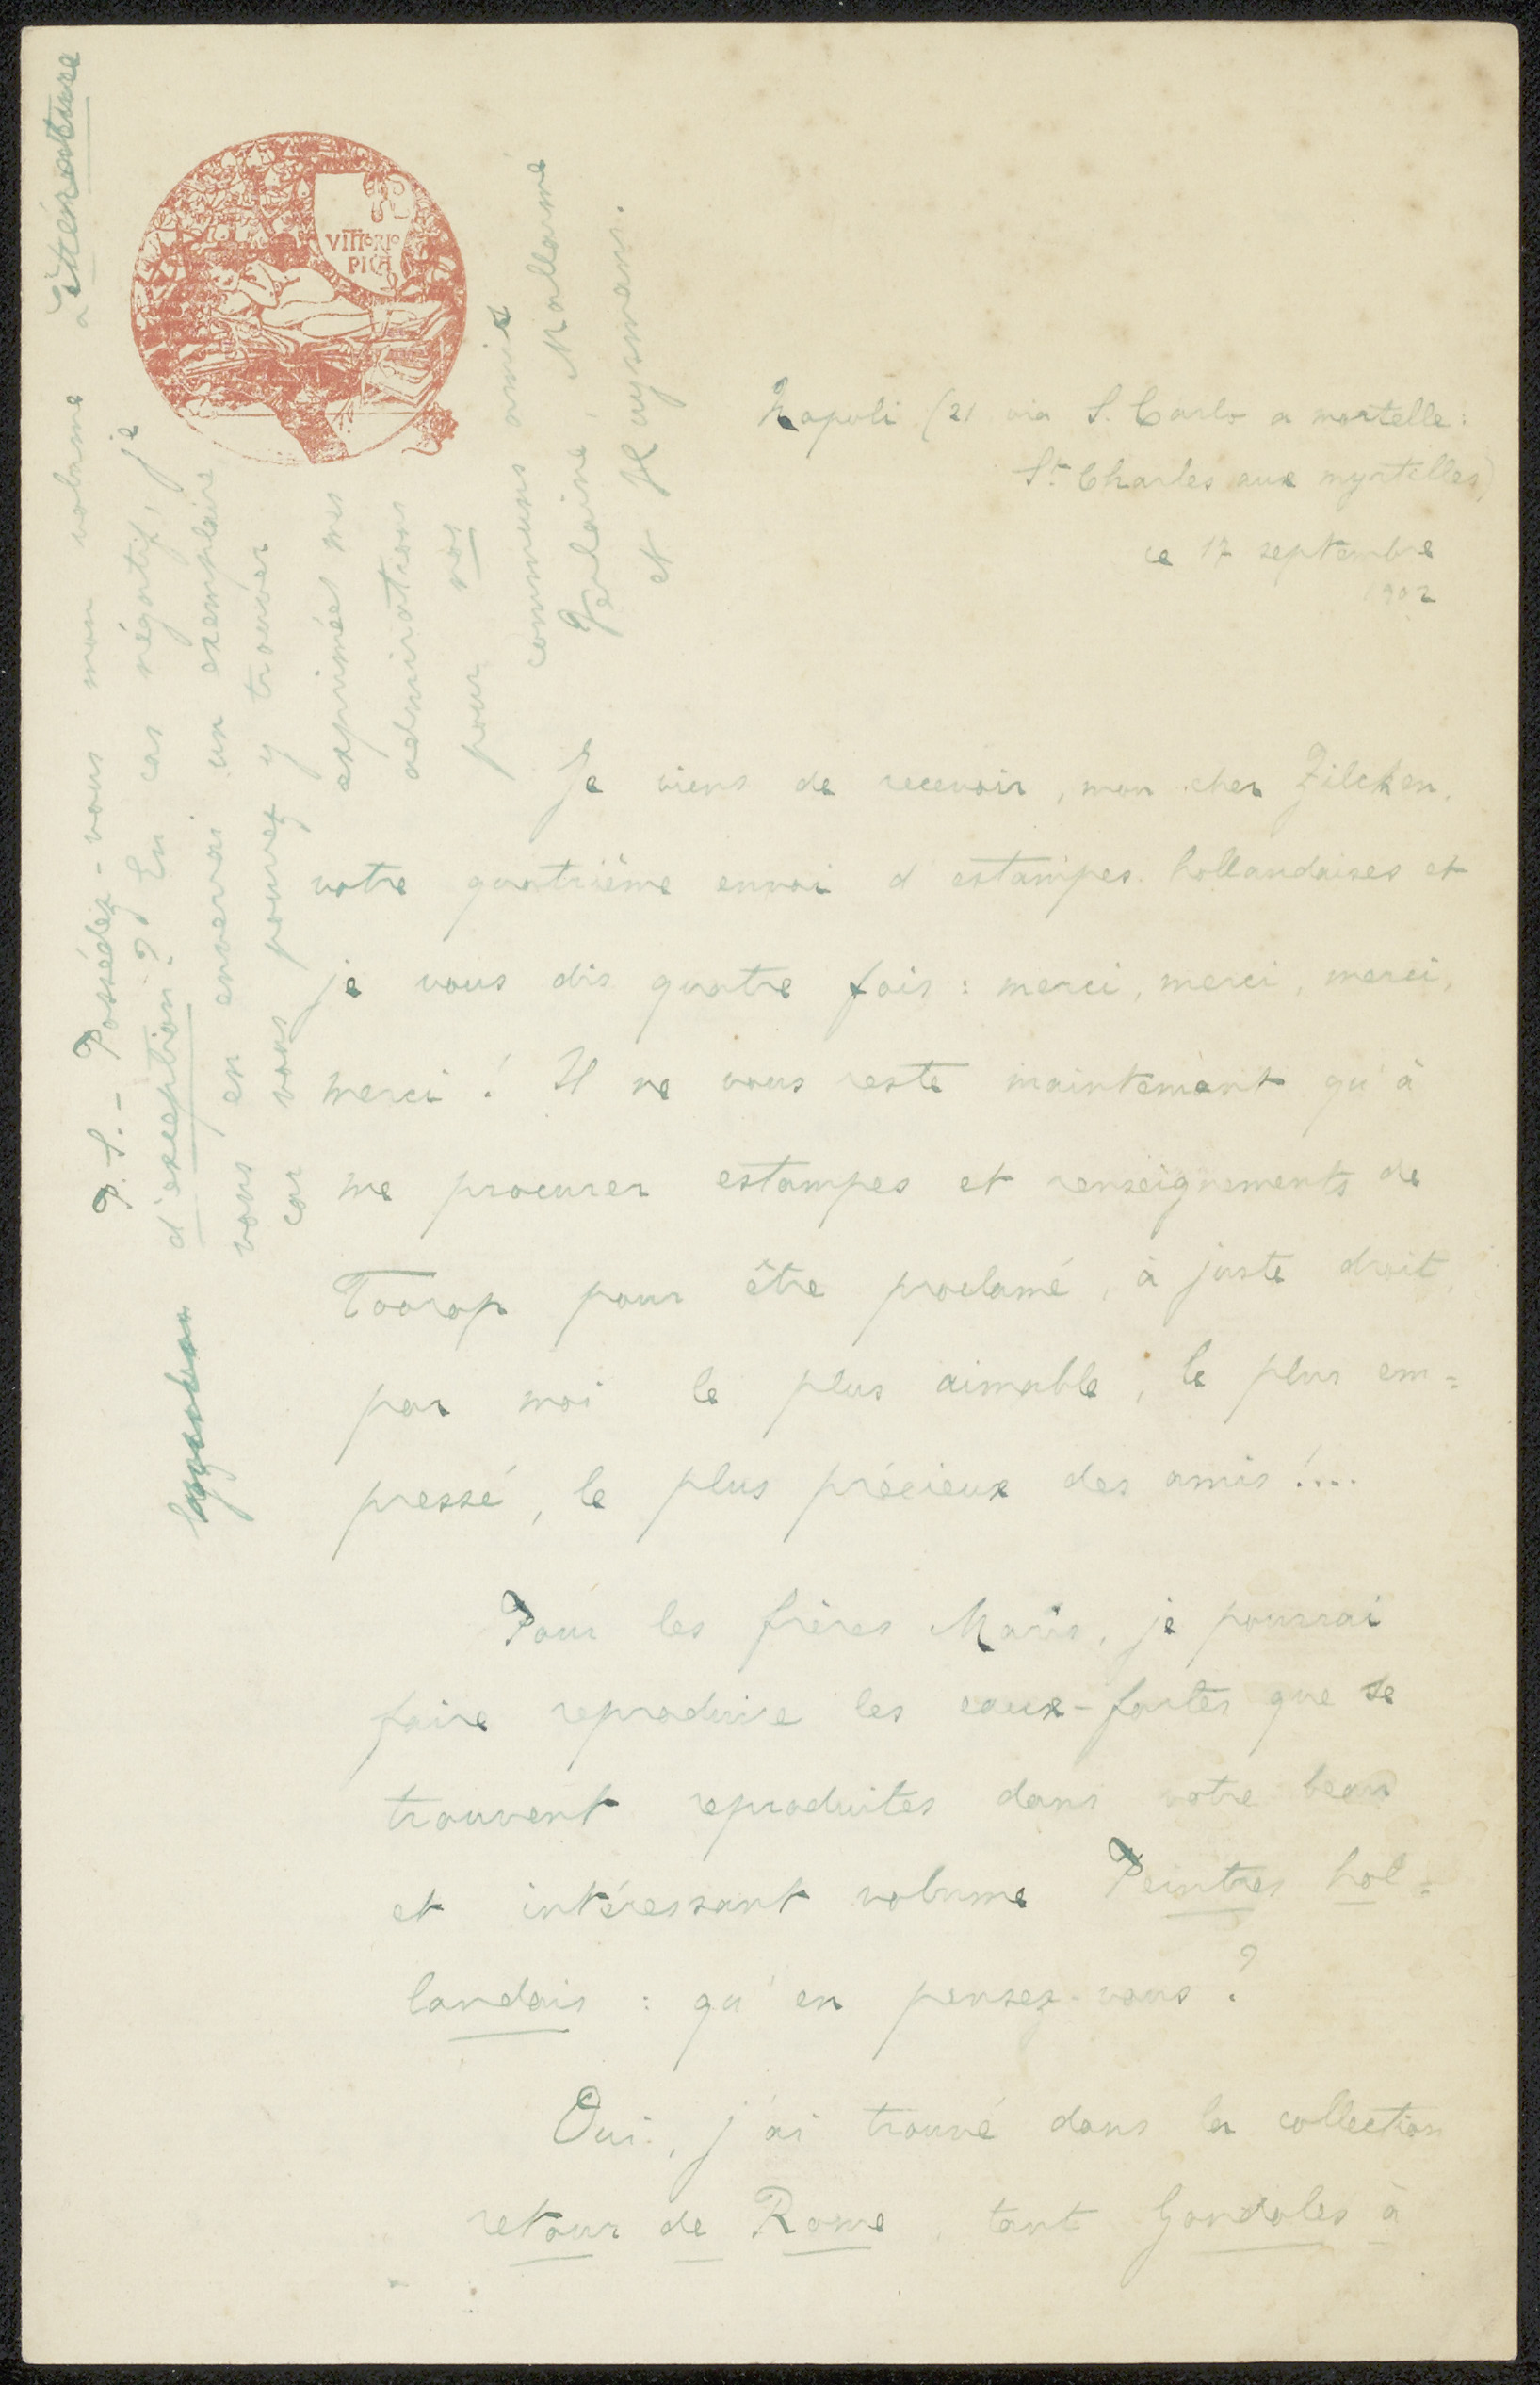 VITTORIO
PICA
Napoli (21 via S. Carlo a mortelle:
St Charles aux myrtilles)
ce 17 septembre
1902
Je viens de recevoir, mon cher Zilcken,
votre quatrième envoi d'estampes hollandaises et
je vous dis quatre fois : merci, merci, merci,
merci ! Il ne vous reste maintenant qu'à
me procurer estampes et renseignements de
Toorop pour être proclamé, à juste droit,
par moi le plus aimable, le plus em=
pressé, le plus précieux des amis !....
Pour les frères Maris, je pourrai
faire reproduire les eaux-fortes que se
trouvent reproduites dans votre beau
et intéressant volume Peintres hol=
landais : qu'en pensez-vous ?
Oui, j'ai trouvé dans la collection
retour de Rome, tant Gondoles à
P.S. - Possédez-vous mon volume
d'exception ? En cas négatif, je
vous en enverrai un exemplaire
car vous pouvez y trouver
exprimées mes
admirations
pour nos
communs amis
Verlaine, Mallarmé
et Huysmans.